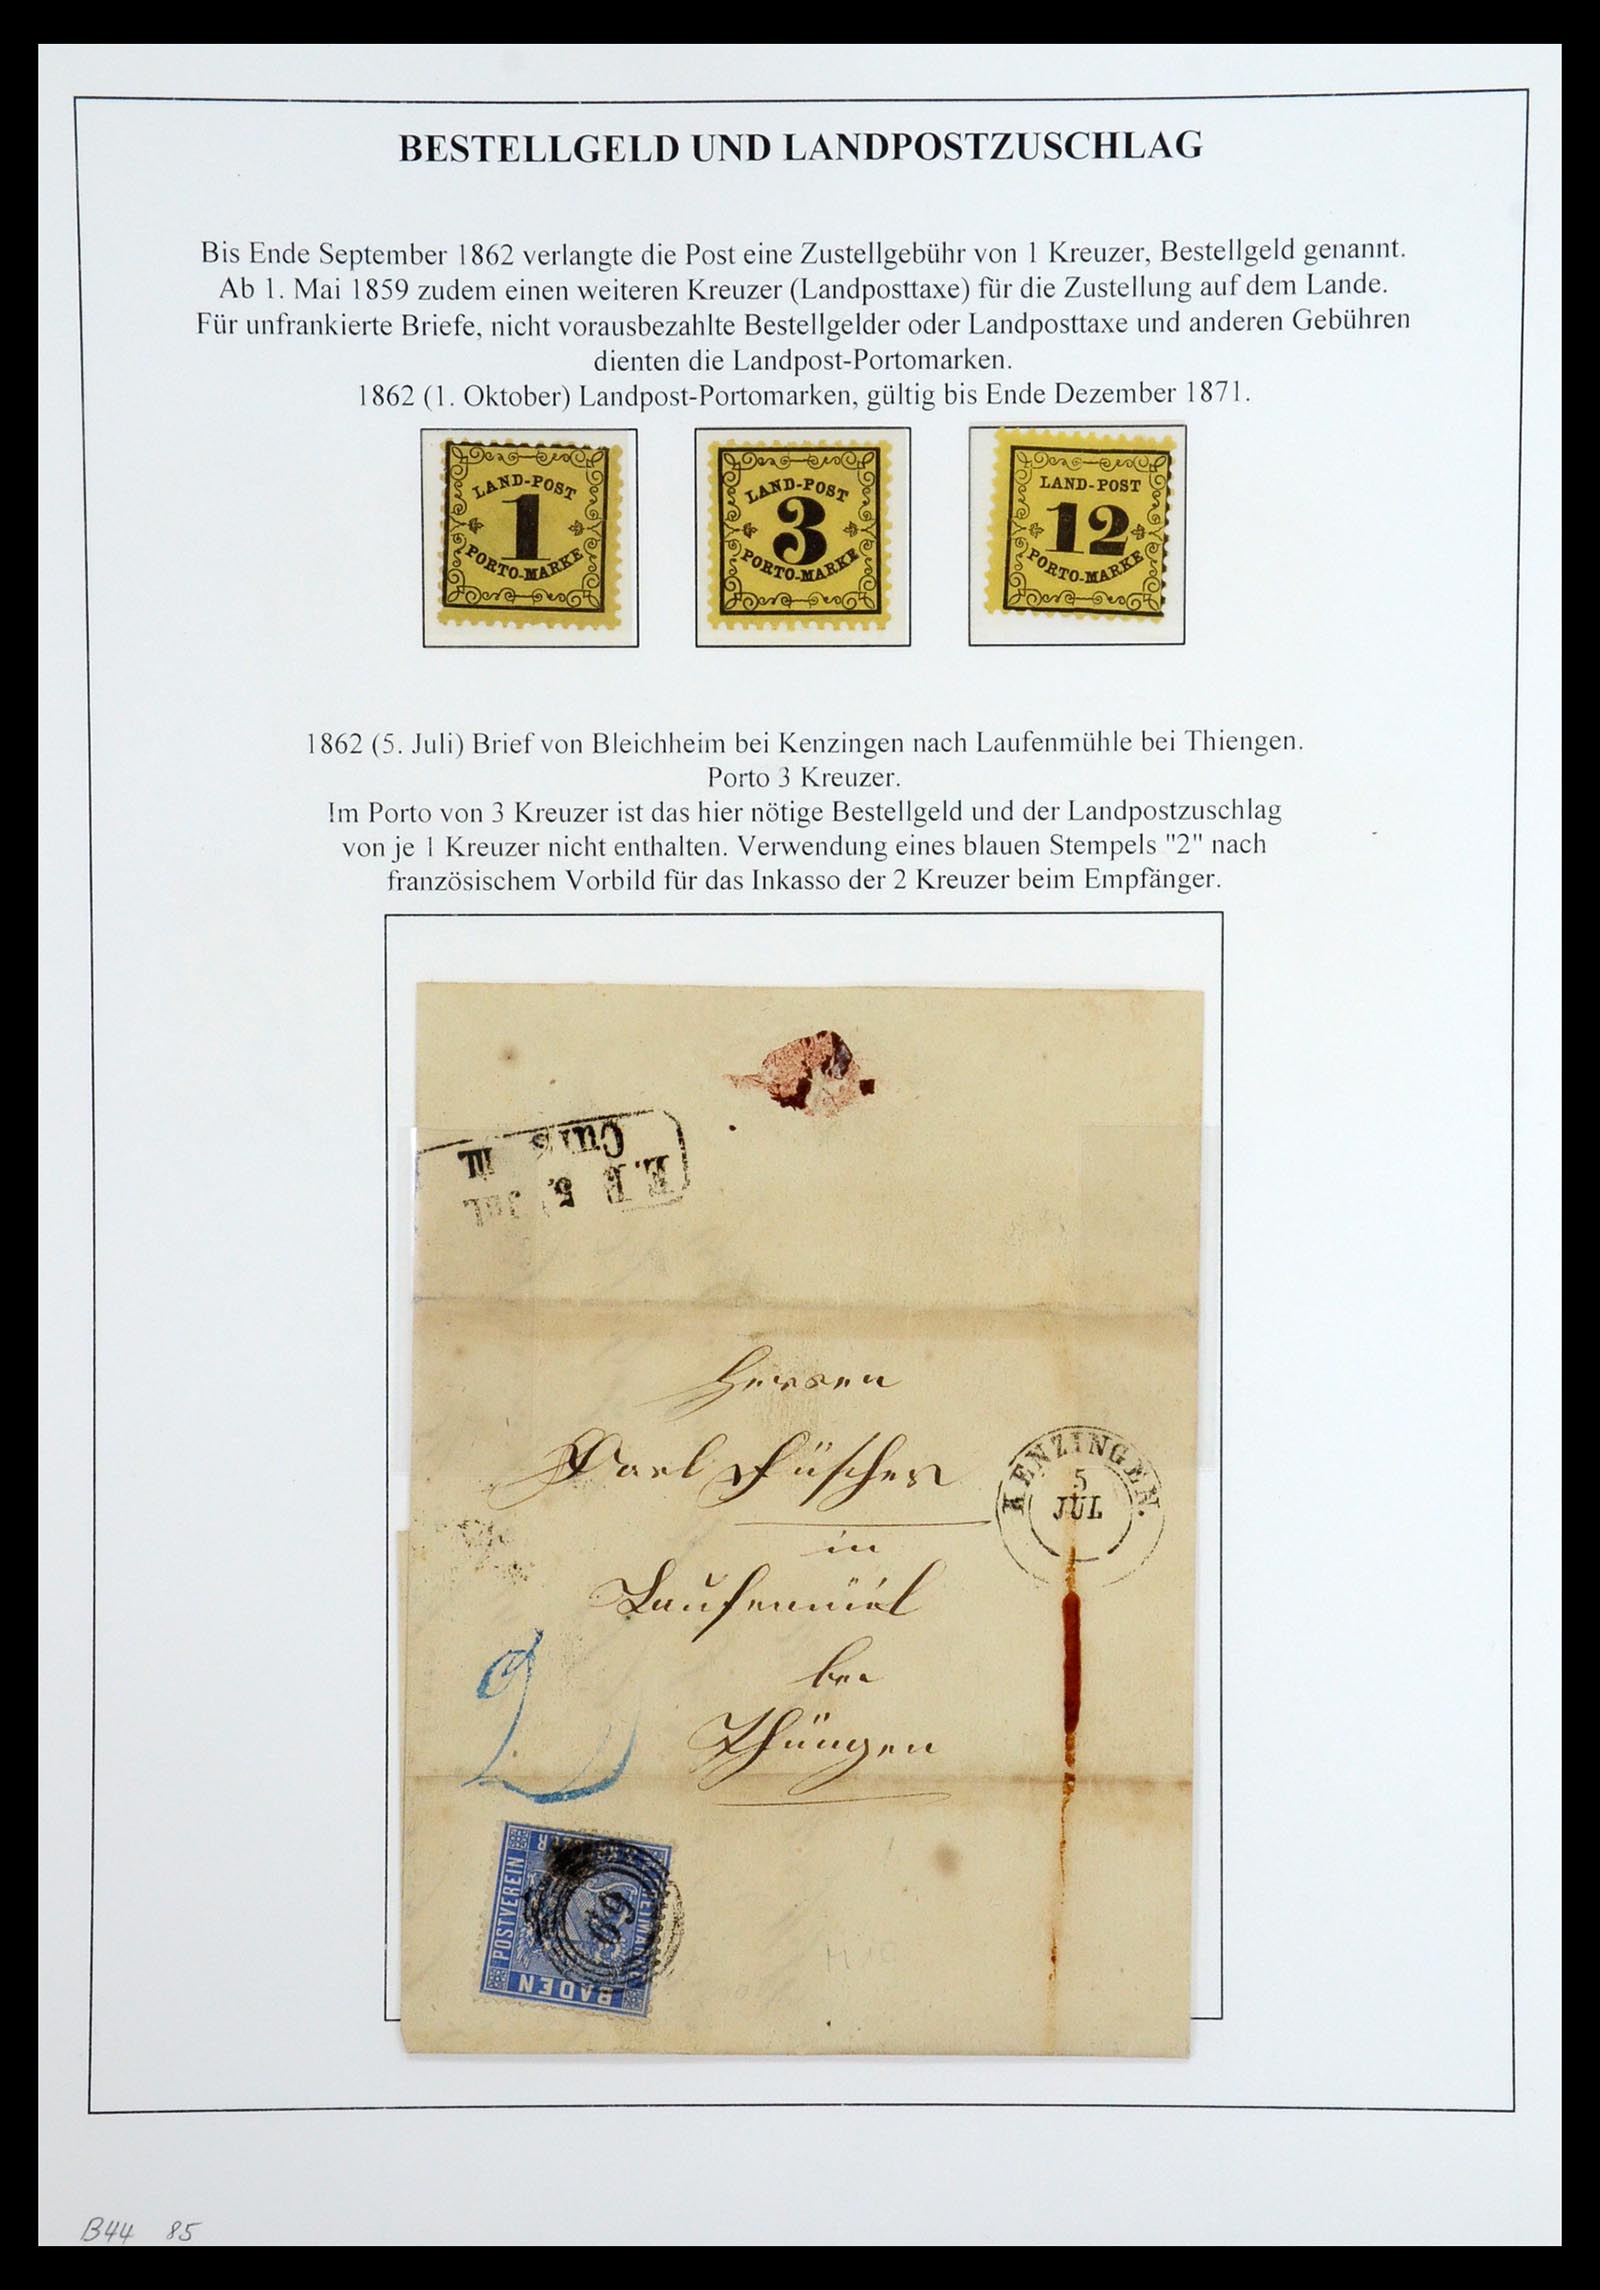 BESTELLGELD UND LANDPOSTZUSCHLAG
Bis Ende September 1862 verlangte die Post eine Zustellgebühr von 1 Kreuzer, Bestellgeld genannt.
Ab 1. Mai 1859 zudem einen weiteren Kreuzer (Landposttaxe) für die Zustellung auf dem Lande.
Für unfrankierte Briefe, nicht vorausbezahlte Bestellgelder oder Landposttaxe und anderen Gebühren
dienten die Landpost-Portomarken.
1862 (1. Oktober) Landpost-Portomarken, gültig bis Ende Dezember 1871.
LAND-POST
1
PORTO-MARKE
LAND-POST
3
PORTO-MARKE
LAND-POST
12
PORTO-MARKE
1862 (5. Juli) Brief von Bleichheim bei Kenzingen nach Laufenmühle bei Thiengen.
Porto 3 Kreuzer.
Im Porto von 3 Kreuzer ist das hier nötige Bestellgeld und der Landpostzuschlag
von je 1 Kreuzer nicht enthalten. Verwendung eines blauen Stempels "2" nach
französischem Vorbild für das Inkasso der 2 Kreuzer beim Empfänger.
E.B. 5. Jul.
Curs III
Herren
Carl Füscher
in
Laufenmül
bei
Thüngen
KENZINGEN.
5
JUL
2
BADEN
POSTVEREIN
69
B44 85